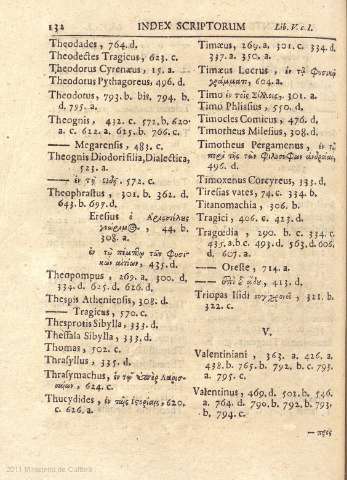 132 INDEX SCRIPTORUM Lib. V. c. I.
Theodades, 764. d.
Theodectes Tragicus, 623. c.
Theodorus Cyrenæus, 15. a.
Theodorus Pythagoreus, 496. d.
Theodotus, 793. b. bis. 794. b.
d. 795. a.
Theognis, 432. c. 572. b. 620.
a. c. 622. a. 625. b. 706. c.
—— Megarensis, 483. c.
Theognis Diodori filia, Dialectica,
523. a.
572. c.
Theophrastus, 301. b. 362. d.
643. b. 697. d.
Eresius ὁ 44. b.
308. a.
435. d.
Theopompus, 269. a. 300. d.
334. d. 625. d. 626. d.
Thespis Atheniensis, 308. d.
—— Tragicus, 570. c.
Thesprotis Sibylla, 333. d.
Thessala Sibylla, 333. d.
Thomas, 502. c.
Thrasyllus, 335. d.
Thrasymachus, ἐν τῷ ὑπὲρ
624. c.
Thucydides, 620.
c. 626. a.
Timæus, 269. a. 301. c. 334. d.
337. a. 350. a.
Timæus Locrus, ἐν τῷ
604. a.
Timo ἐν τοῖς Σίλλοις, 301. a.
Timo Phliasius, 550. d.
Timocles Comicus, 476. d.
Timotheus Milesius, 308. d.
Timotheus Pergamenus, ἐν τῷ
περὶ τῆς τῶν
496. d.
Timoxenus Corcyreus, 333. d.
Tiresias vates, 74. c. 334. b.
Titanomachia, 306. b.
Tragici, 406. c. 423. d.
Tragœdia, 290. b. c. 334. c.
435. a. b. c. 493. d. 563. d. 606.
d. 607. a.
—— Oreste, 714. a.
413. d.
Triopas Isidi 321. b.
322. c.
V.
Valentiniani, 363. a. 426. a.
438. b. 765. b. 792. b. c. 793.
a. 795. c.
Valentinus, 469. d. 503. b. 546.
a. 764. d. 790. b. 792. b. 793.
b. 794. c.
2011 Ministerio de Cultura